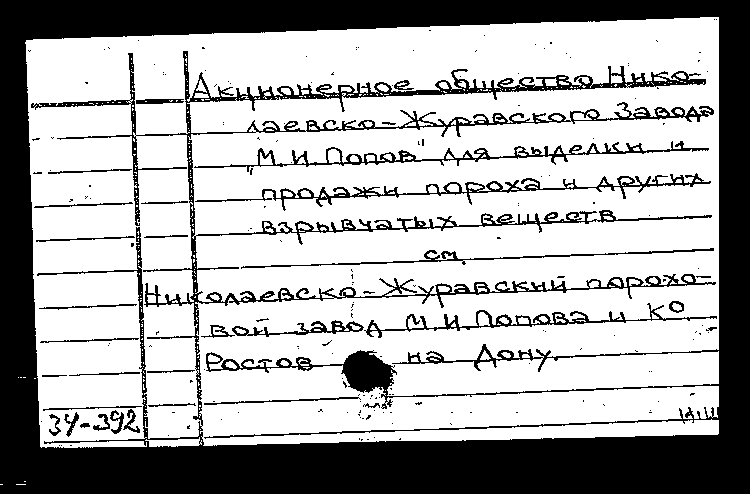 Акционерное общество Нико-
лаевско-Журавского Завода
"М.И.Попов" для выделки и
продажи пороха и других
взрывчатых веществ
см
Николаевско-Журавский порохо-
вой завод М.И.Попова и К⁰
Ростов на Дону.
34-392